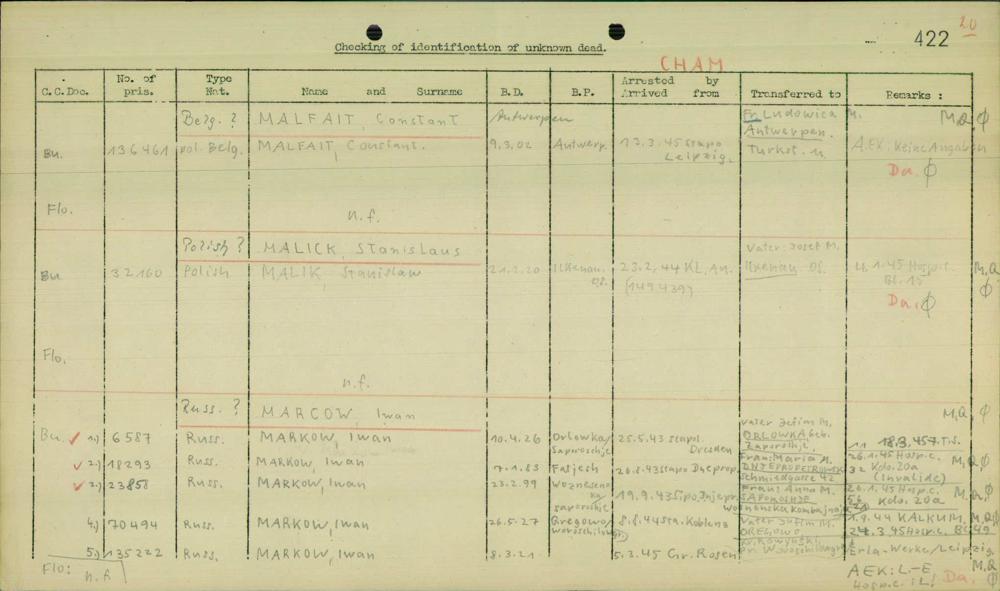 20
422
Checking of identification of unknown dead.
CHAM
C.C.Doc. No. of pris. Type Nat. Name and Surname B.D. B.P. Arrested by Arrived from Transferred to Remarks :
Belg. ? MALFAIT, Constant Antwerpen Fr. Ludowica M. M,Q,Ø
Antwerpen.
Bu. 136461 pol. Belg. MALFAIT, Constant. 9.3.02 Antwerp. 12.3.45 stapo Turkst. A.EK: Keine Angaben
Leipzig. Da. Ø
Flo. n.f.
Polish ? MALICK, Stanislaus Vater: Josef M.
Bu. 32160 Polish MALIK, Stanislaw 21.2.20 Ilkenau. 23.2.44 KL, Au. Ilkenau OS. 4.1.45 Hosp.c. M,Q
OS. (149439) Bl. 15 Ø
Da. Ø
Flo.
n.f.
Russ. ? MARCOW, Iwan M,Q, Ø
Vater Jefim M,
Bu. ✓ 1.) 6587 Russ. MARKOW, Iwan 10.4.26 Orlowka/ 25.5.43 stapol. ORLOWKA, Geb.
Saporoshje Dresden Saporoshje,
✓ 2.) 18293 Russ. MARKOW, Iwan 7.1.83 Fatjesh 26.8.43 stapo Dneprop. Frau: Maria M. 26.1.45 Hosp.c. M,Q Ø
DNJEPROPETROWSK 32 Kdo. 20a
Schmiedgasse 42 (Invalide)
✓ 3.) 23858 Russ. MARKOW, Iwan 23.2.99 Woznesenka/ 19.9.43 Sipo, Dnjepr. Frau: Anna M. 26.1.45 Hosp.c. M,Q, Ø
saporoshje SAPOROSHJE 56 Kdo. 20a
4.) 70494 Russ. MARKOW, Iwan 26.5.27 8.8.44 sta. Koblenz Vater Jefim M. 1.9.44 KALKUM. M,Q,
24.3.45 Hosp.c.
5.) 135222 Russ. MARKOW, Iwan 8.3.21 5.3.45 Gr. Rosen Erla-Werke/Leipzig.
Flo: n.f AEK: L.-E M,Q
Hosp.c.: L! Da. Ø